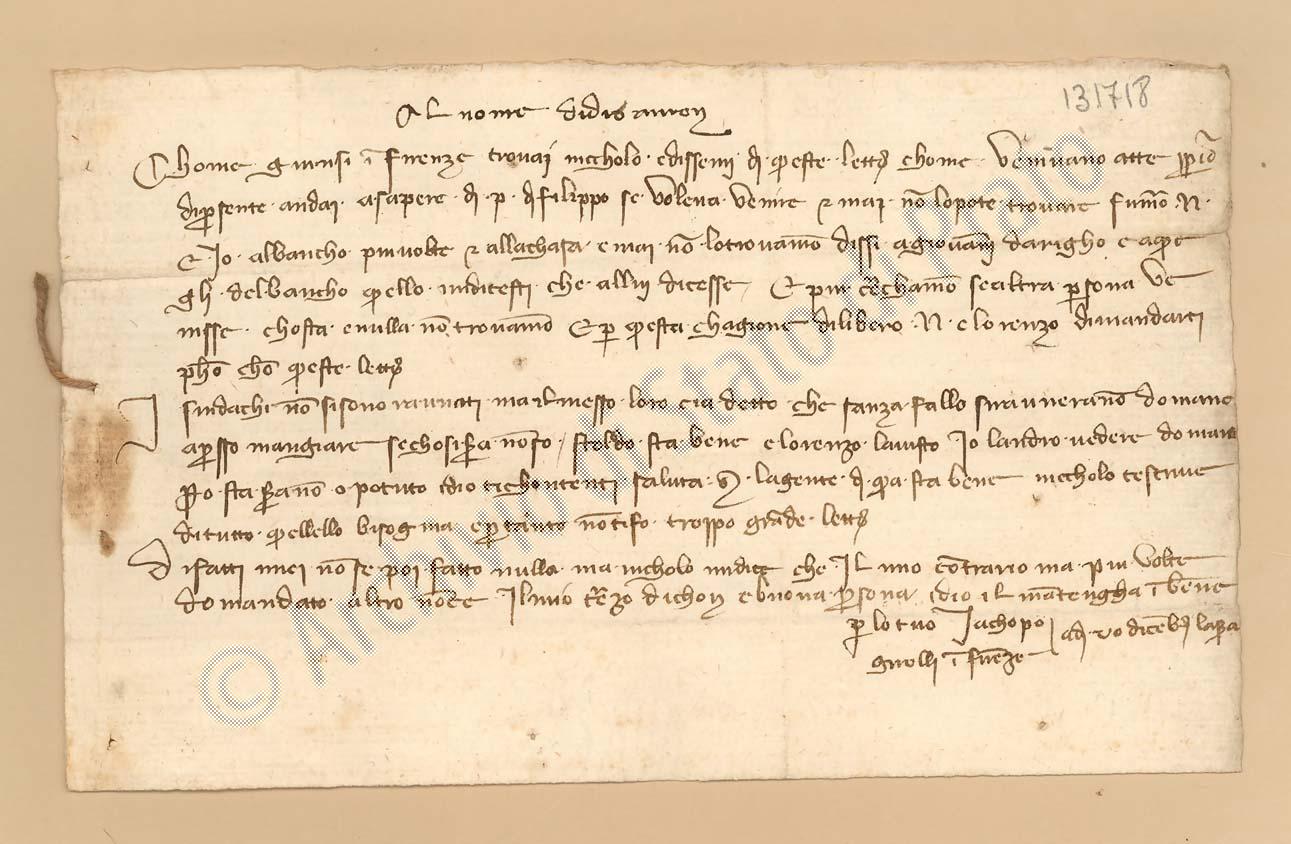 131718
Al nome di dio amen
Chome giunsi i Firenze trovai nicholo edissemi di queste lettere chome venivano atte
di presente andai asapere di p di filippo se voleva venire e mai no lo pote trovare fumo N
e Io albancho piu volte e allachasa e mai no lotrovamo dissi agiovani darigho e aque
gli delbancho quello midicesti che allui dicesse E piu cerchamo sealtra persona ve
nisse chosta enulla no trovamo E per questa chagione dilibero N e lorenzo dimandarti
cho queste lettere
I sindachi no sisono raunati ma ilmesso loro cia detto che sanza fallo siraunerano domane
apresso mangiare sechosi sara nonso stoldo sta bene e lorenzo lavisto Io landro vedere domane
no o potuto idio tichontenti saluta lagente di qua sta bene nicholo tescrive
ditutto quello bisogna e pertanto nontifo troppo grade lettere
Di fatti miei no se poi fatto nulla ma nicholo midice che Il mio contraro ma piu volte
domandato altro none Il mio e buona persona idio il mantengha i bene
per lo tuo Jachopo adi di dicenbre lasera
i firenze
© Archivio di Stato di Prato